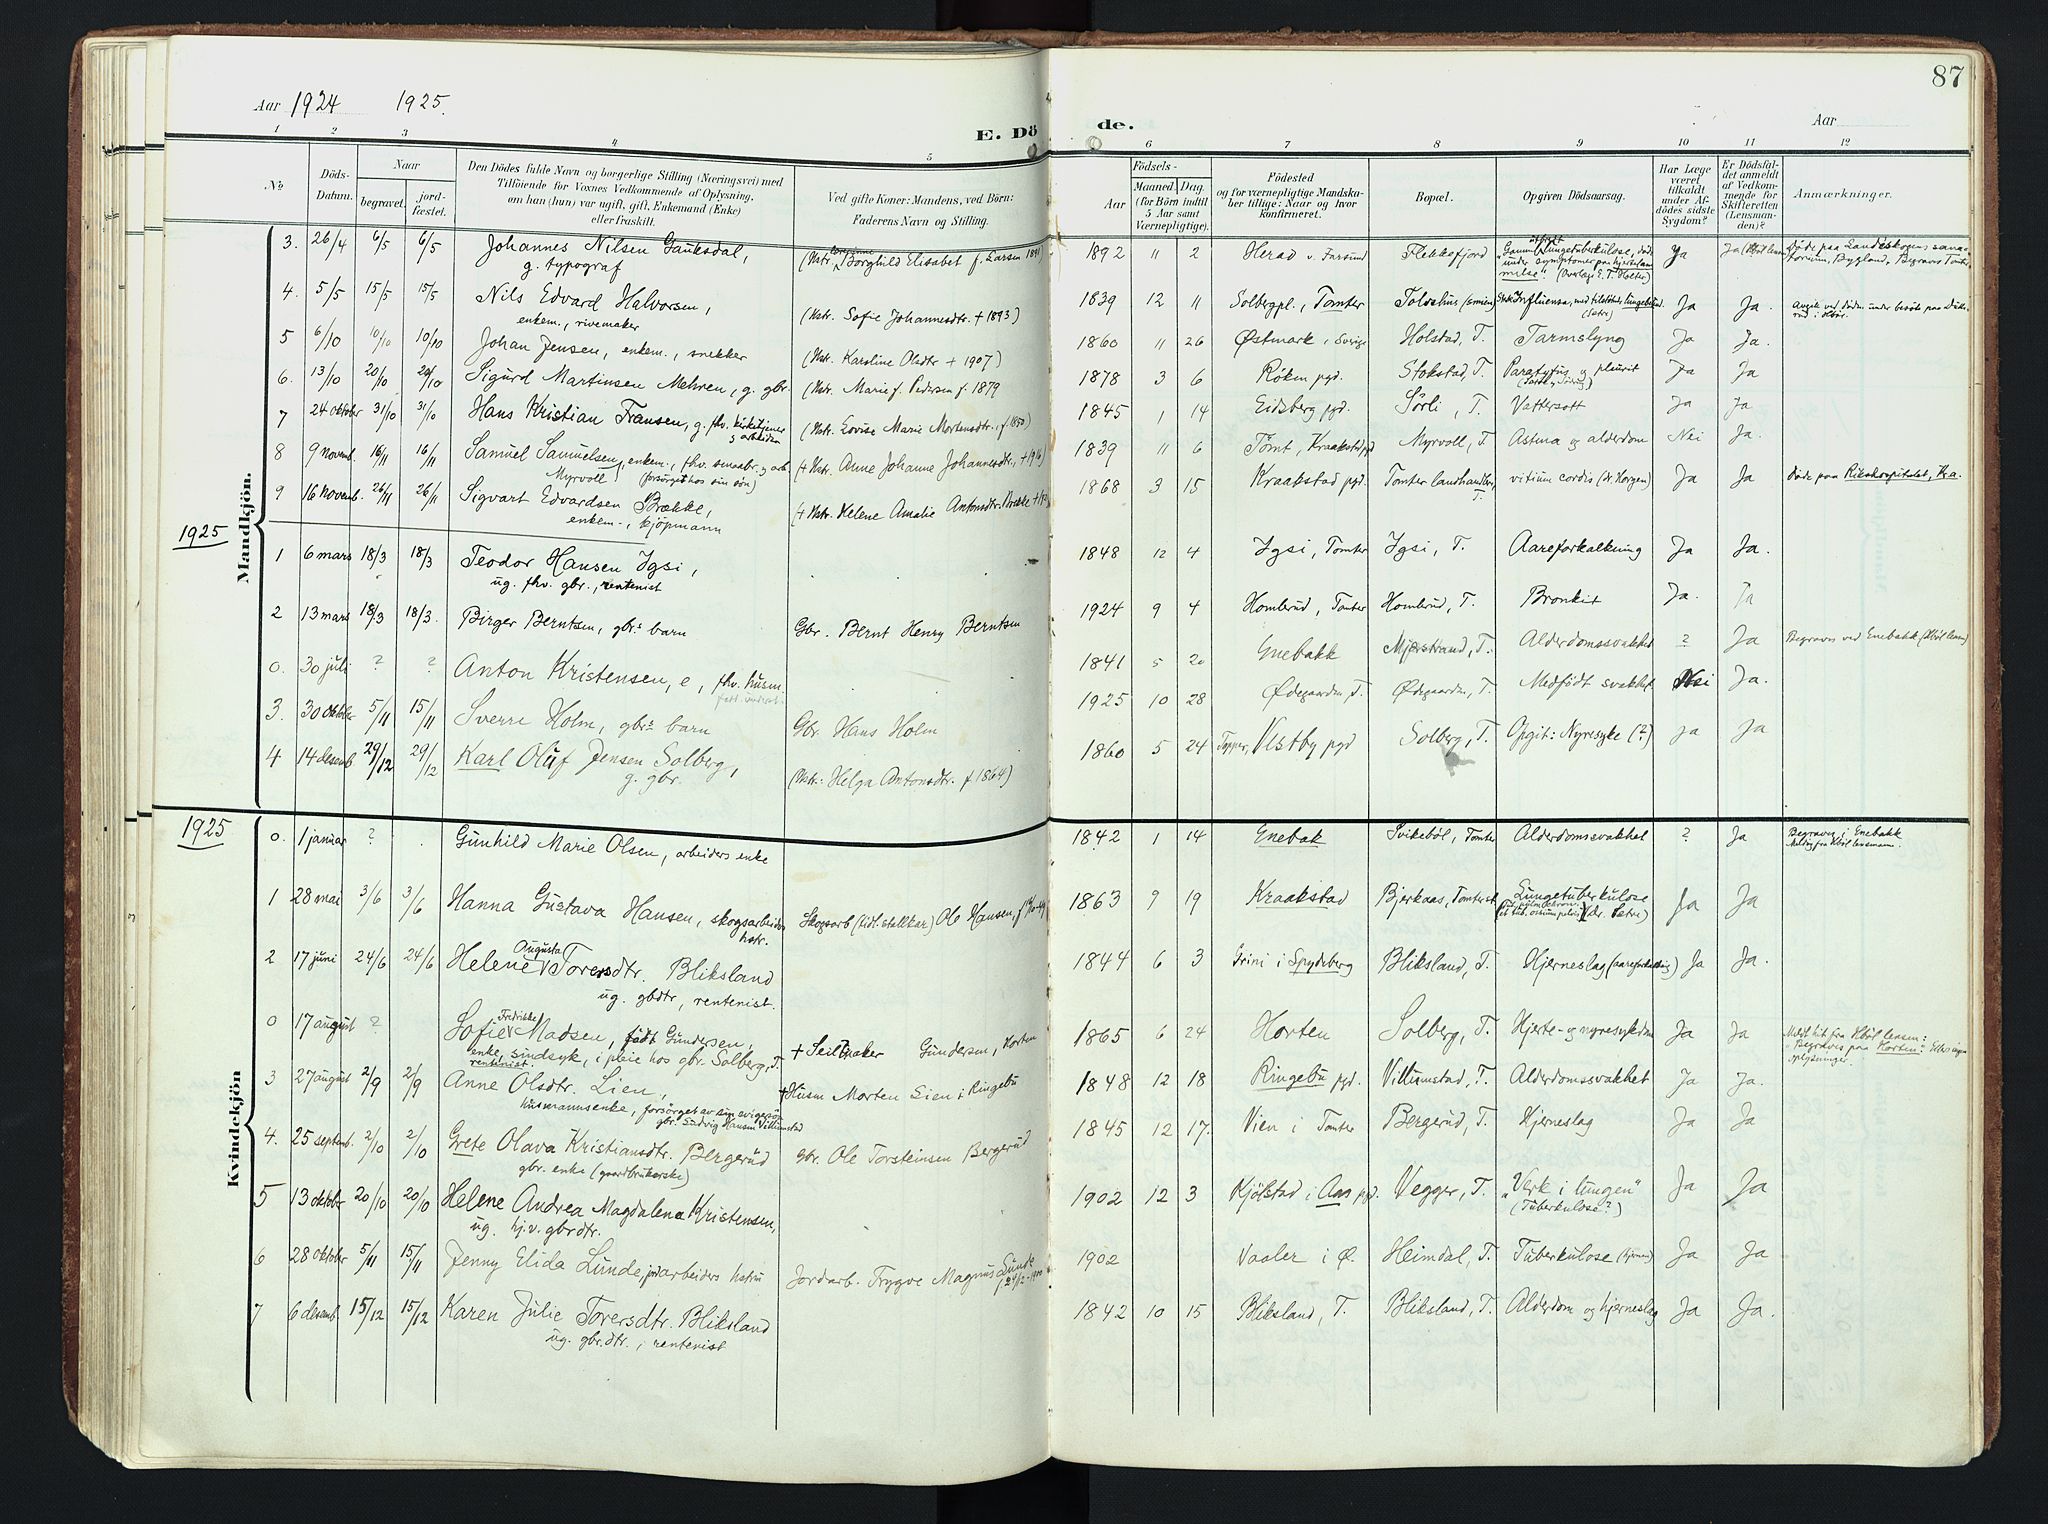 87
Aar 1924 1925.
Aar
E. Dö de.
1 2 3 4 5 6 7 8 9 10 11 12
No
Döds-Datum.
Naar
begravet.
jord-fæstet.
Den Dödes fulde Navn og borgerlige Stilling (Næringsvei) med
Tilföiende for Voxnes Vedkommende af Oplysning,
om han (hun) var ugift, gift, Enkemand (Enke)
eller fraskilt.
Ved gifte Koner: Mandens, ved Börn:
Faderens Navn og Stilling.
Födsels-
Aar
Maaned. Dag.
(for Börn indtil
5 Aar samt
Værnepligtige).
Födested
og for værnepligtige Mandska-
ber tillige: Naar og hvor
konfirmeret.
Bopæl.
Opgiven Dödsaarsag.
Har Læge
været
tilkaldt
under Af-
dödes sidste
Sygdom?
Er Dödsfal-
det anmeldt
af Vedkom-
mende for
Skifteretten
(Lensman-
den)?
Anmærkninger.
Mandkjön.
3. 26/4 6/5 6/5 Johannes Nilsen Gauksdal, (Hstr. Borghild Elisabet f. Larsen 1892 11 2 Herad v. Farsund Flekkefjord Ja Ja
g. typograf
4. 5/5 15/5 15/5 Nils Edvard Halvorsen, (Hstr. Sofie Johannesdtr. + 1893) 1839 12 11 Solbergpl., Tomter Ja Ja.
enkem., rivemaker
5 6/10 10/10 10/10 Johan Jensen, enkem., snekker (Hstr. Karoline Olsdtr + 1907) 1860 11 26 Østmark, i Sverige Holstad, T. Tarmslyng Ja Ja.
6. 13/10 20/10 20/10 Sigurd Martinsen Mehren, g. gbr. (Hstr. Marie f. Pedersen f. 1879 1878 3 6 Røken pgd. Stokstad, T. Paratyfus og pleurit Ja Ja
7 24 oktober 31/10 31/10 Hans Kristian Fransen, g. fhv. kirketjener (Hstr. Lovise Marie Mortensdtr., f. 1850) 1845 1 14 Eidsberg pgd. Sørli, T. Vattersott Ja Ja
8 9 novemb. 16/11 16/11 Samuel Samuelsen, enkem., (+ Hstr. Anne Johanne Johannesdtr., 1839 11 6 Tomt, Kraakstad pgd Myrvoll, T. Astma og alderdom Nei Ja.
Myrvoll (forsørget hos sin søn)
9 16 novemb. 26/11 26/11 Sigvart Edvardsen Brække, (+ Hstr. Helene Amalie Antonsdtr. 1868 3 15 Kraakstad pgd. Tomter landhandleri, T. vitium cordis (Dr. Horgen) Ja Ja Døde paa Rikshospitalet, Kr.a.
enkem., kjøpmann
1925
1 6 mars 18/3 18/3 Teodor Hansen Igsi, 1848 12 4 Igsi, Tomter Igsi, T. Aareforkalkning Ja Ja.
ug. fhv. gbr., rentenist
2 13 mars 18/3 18/3. Birger Berntsen, gbr.s barn Gbr. Bernt Henry Berntsen 1924 9 4 Homlerud, Tomter Homlerud, T. Bronkit Ja. Ja
0. 30 juli ? ? Anton Kristensen, e, fhv. husm. 1841 5 20 Enebakk Mjærstrand, T. Alderdomssvakhet ? Ja Begraves ved Enebakk
3. 30 oktober 5/11 15/11 Sverre Holm, gbr.s barn Gbr. Hans Holm 1925 10 28 Ødegaarden, T. Ødegaarden, T. Medfødt svakhet Nei Ja.
4 14 desemb 29/12 29/12 Karl Oluf Jensen Solberg, (Hstr.: Helga Antonsdtr. f. 1864) 1860 5 24 Vestby pgd Solberg, T. Opgit: Nyresyke (?) Ja Ja
g. gbr.
Kvindekjön
1925
0. 1 januar ? . Gunhild Marie Olsen, arbeiders enke 1842 1 14 Enebak Svikebøl, Tomter Alderdomssvakhet ? Ja Begraves i Enebakk
1 28 mai 3/6 3/6 Hanna Gustava Hansen, skogsarbeiders Skogsarb (tidl. stallkar) Ole Hansen, 1863 9 19 Kraakstad Bjerkaas, Tomter st. Lungetuberkulose Ja Ja
hstr.
2 17 juni 24/6 24/6 Helene Augusta Toversdtr. Bliksland 1844 6 3 Spydeberg Bliksland, T. Hjerneslag (aareforkalkning) Ja Ja.
ug. gbdtr, rentenist.
0 17 august ? Sofie Fredrikke Madsen, født Gundersen, + Seilmaker Gundersen, Horten 1865 6 24 Horten Solberg, T. Hjerte- og nyresykdom Ja Ja
enke, sindsyk, i pleie hos gbr. Solberg, T.
rentenist.
3 27 august 2/9 2/9 Anne Olsdtr. Lien, + Husm Morten Lien i Ringebu 1848 12 18 Ringebu pgd. Villumstad, T. Alderdomssvakhet Ja Ja.
husmannsenke, forsørget av sin svigersøn
gbr. Ludvig Hansen Villumstad
4. 25 septemb. 2/10 2/10 Grete Olava Kristiansdtr. Bergerud gbr. Ole Torsteinsen Bergerud 1845 12 17. Vien i Tomter Bergerud, T. Hjerneslag Ja Ja
gbr. enke (gaardbrukerske)
5 13 oktober 20/10 20/10 Helene Andrea Magdalena Kristensen, 1902 12 3 Kjølstad i Aas pgd. Vegger, T. "Verk i lungen" Ja Ja
ug. hj.v. gbrdtr. (Tuberkulose?)
6 28 oktober 5/11 15/11 Jenny Elida Lunde, jordarbeiders hstru Jordarb. Trygve Magnus Lunde 1902 Vaaler i Ø. Heimdal, T. Tuberkulose Ja Ja
7 6 desemb. 15/12 15/12 Karen Julie Toversdtr. Bliksland 1842 10 15 Bliksland, T. Bliksland, T. Alderdom og hjerneslag Ja Ja.
ug. gbr.dtr., rentenist